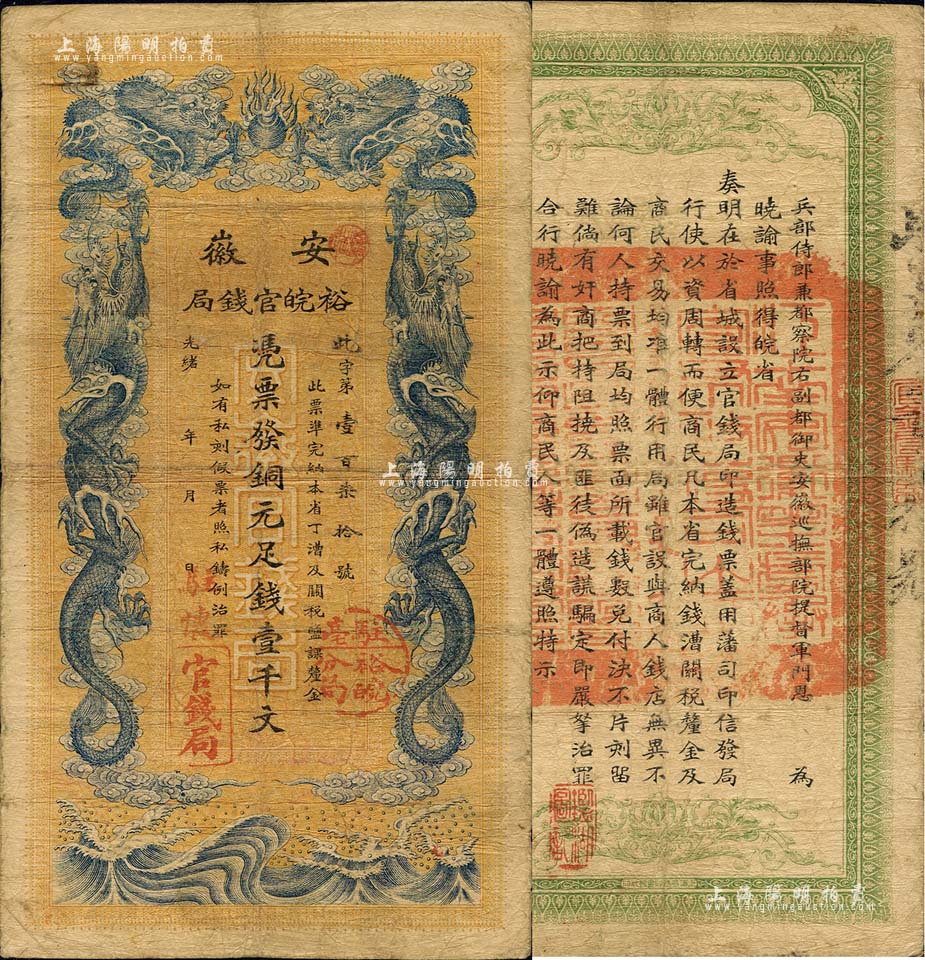 上海陽明拍賣
www.yangmingauction.com
安徽
裕皖官錢局
此字第壹百柒拾號
此票準完納本省丁漕及關稅鹽課釐金
憑票發銅元足錢壹千文
如有私刻假票者照私鑄例治罪
光緒 年 月 日
駐裕皖
臺分局
官錢局
上海陽明拍賣
www.yangmingauction.com
兵部侍郎兼都察院右副都御史安徽巡撫部院提督軍門恩 為
曉諭事照得皖省
奏明在於省城設立官錢局印造錢票蓋用藩司印信發局
行使以資周轉而便商民凡本省完納錢漕關稅釐金及
商民交易均准一體行用局雖官設與商人錢店無異不
論何人持票到局均照票面所載錢數兌付決不片刻留
難倘有奸商把持阻撓及匪徒偽造謊騙定即嚴拏治罪
合行曉諭為此示仰商民人等一體遵照特示
上海陽明拍賣
www.yangmingauction.com